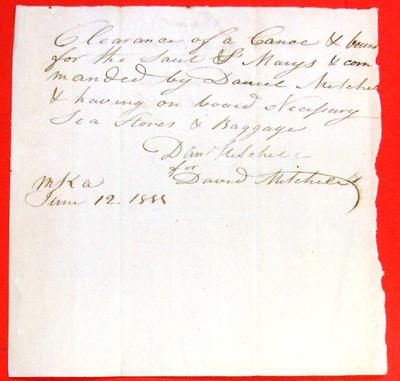 Clearance of a Canoe & bound
for the Saut St Marys & com
manded by Daniel Mitchel
& having on board Necessary
Sea Stores & Baggage
Danl Mitchell
for
David Mitchell
mKa
June 12. 18